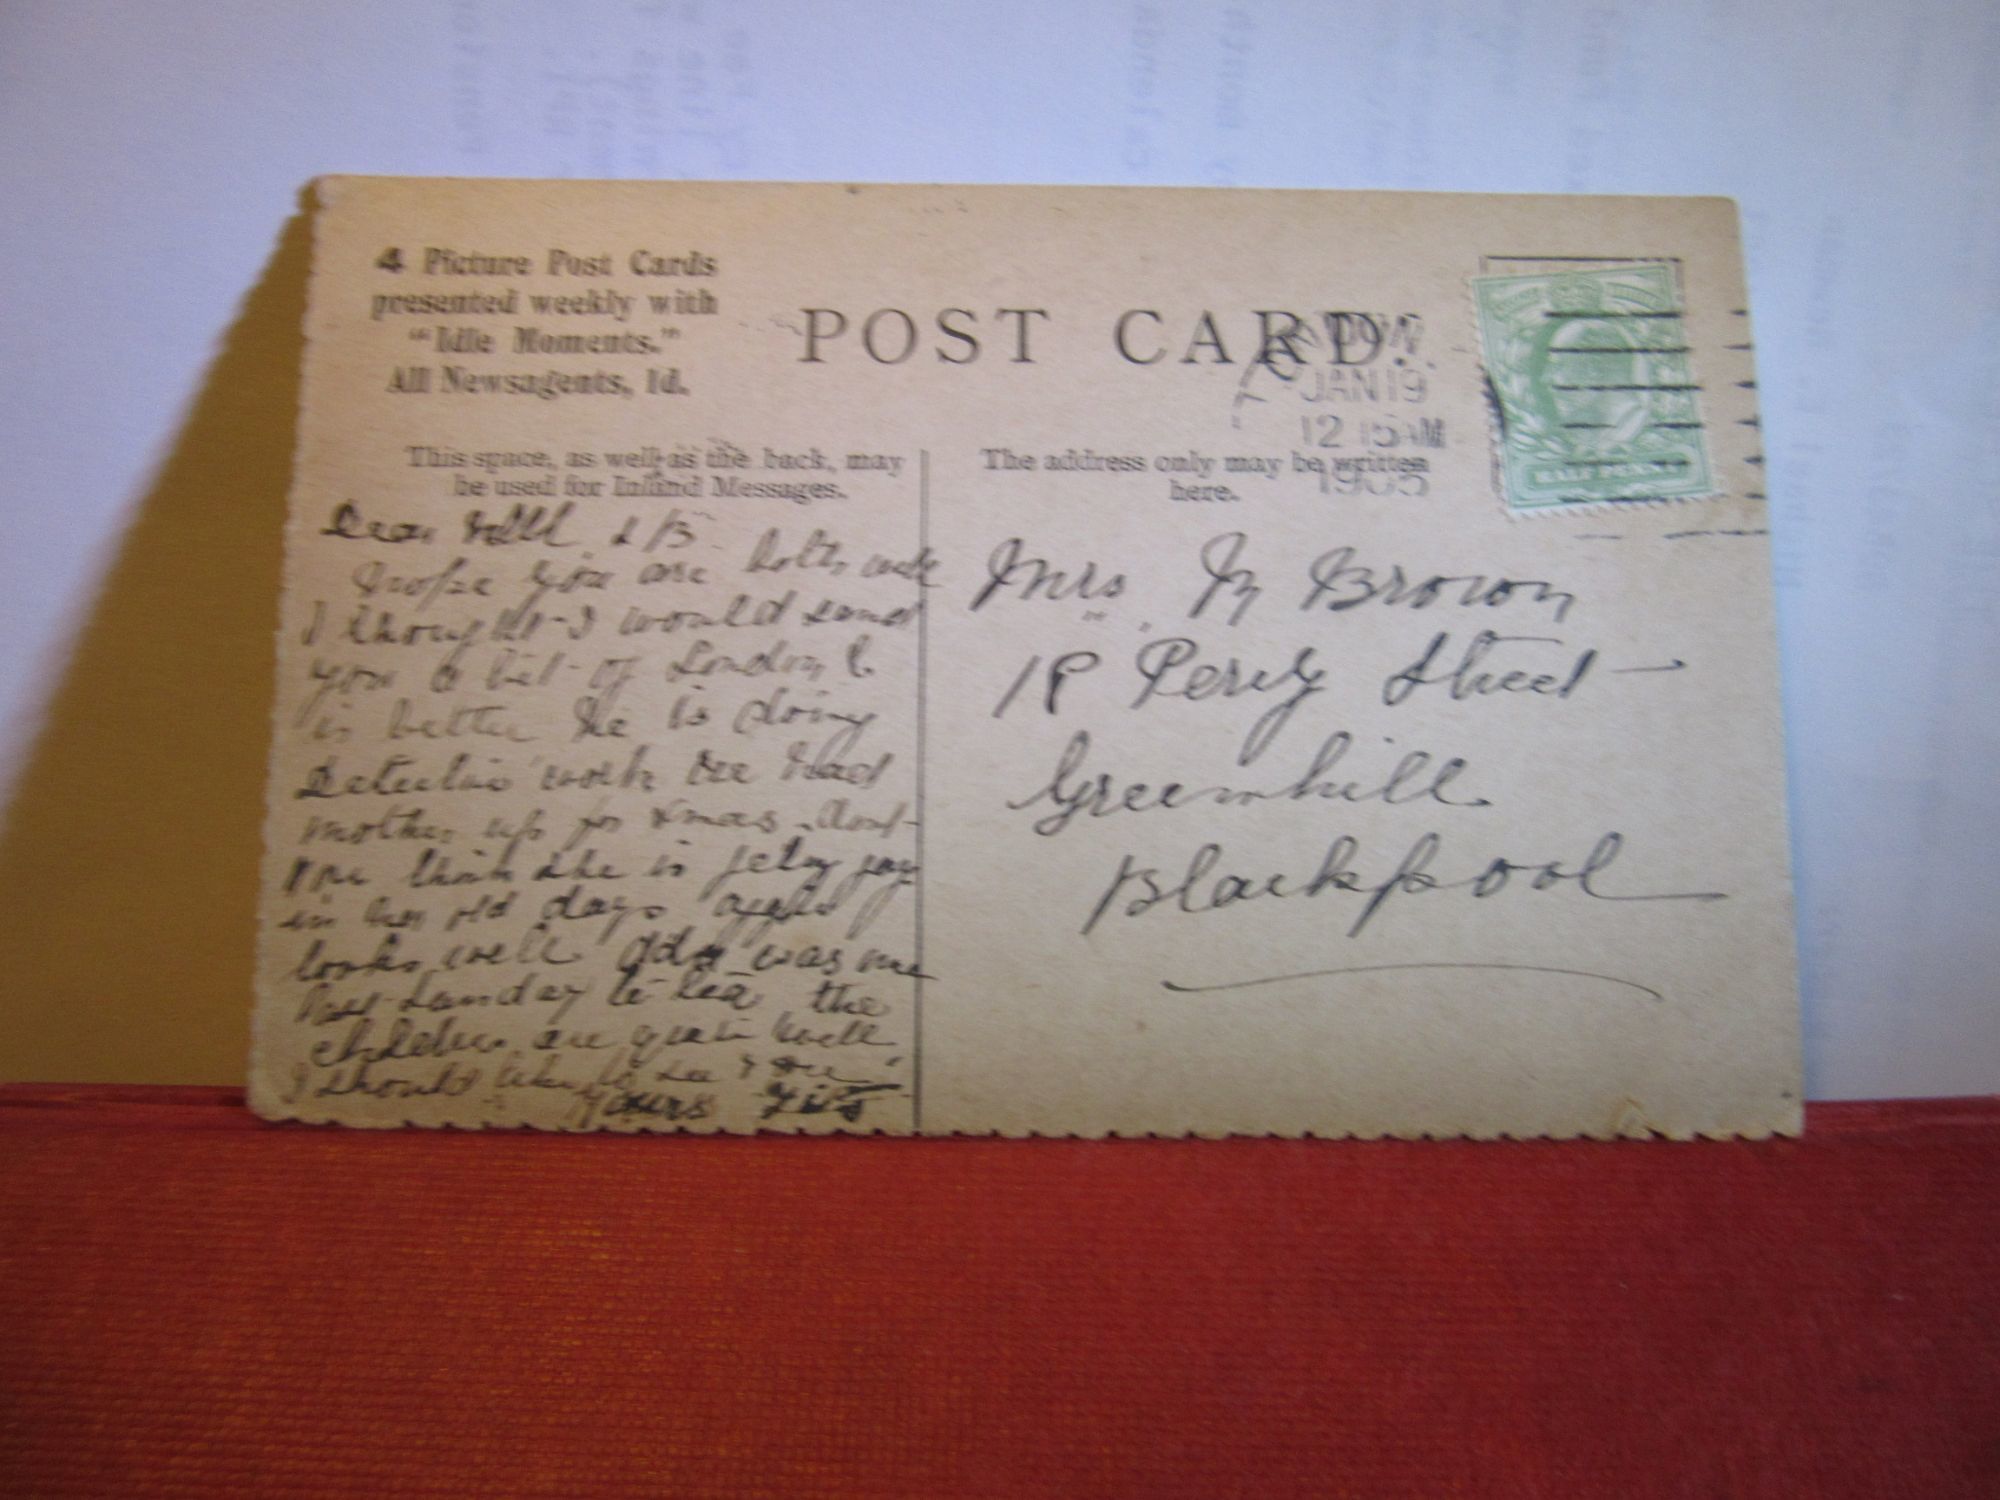 4 Picture Post Cards
presented weekly with
"Idle Moments."
All Newsagents, 1d.
POST CARD.
JAN 19
12 15 AM
1905
This space, as well as the back, may
be used for Inland Messages.
The address only may be written
here.
HALF PENNY
Dear & B
hope you are both well
I thought I would send
you a bit of London
is better he is doing
Detective work we had
mother up for Xmas dont
you think she is
in her old days
looks well was
Sunday to tea the
children are quite well
I should like to see
Yours
Mrs M Brown
18 Percy Street
Greenhill
Blackpool